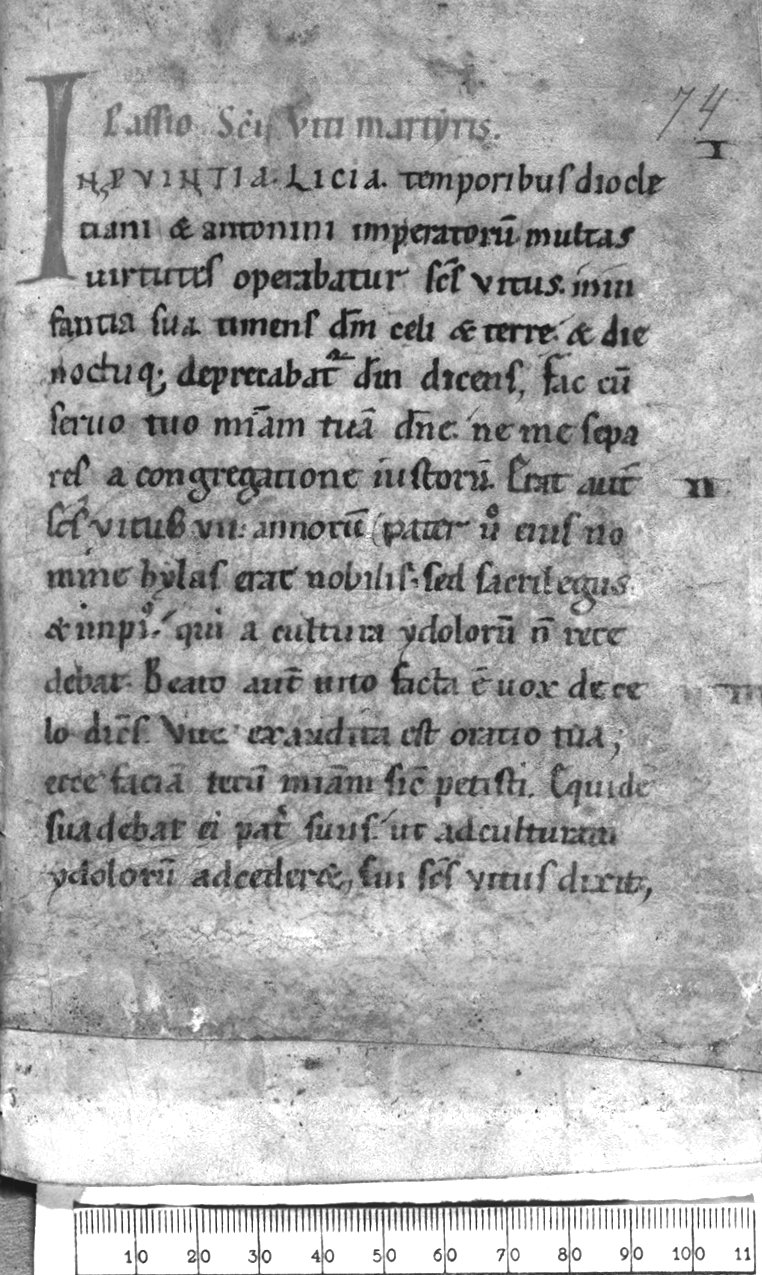 74
Passio Sc̄i Viti martyris.
I
IN PVINTIA. LICIA. temporibus diocle
tiani & antonini imperatorū multas
uirtutes operabatur sc̄s vitus. in in
fantia sua timens dm̄ celi & terre. & die
noctuq; deprecabat᷑ dm̄ dicens, fac cū
seruo tuo mīam tuā dn̄e. ne me sepa
res a congregatione iustorū. Erat aut̄
II
sc̄s vitus vii. annorū pater ůo eius no
mine hylas erat nobilis. sed sacrilegus
& impiꝰ. qui a cultura ydolorū n̄ rece
debat. Beato aut̄ uito facta ē uox de ce
III
lo dic̄s. Vite exaudita est oratio tua;
ecce faciā tecū mīam sic̄ petisti. Equidē
suadebat ei pat̄ suus. ut ad culturam
ydolorū adceder&, cui sc̄s vitus dixit,
10 20 30 40 50 60 70 80 90 100 11